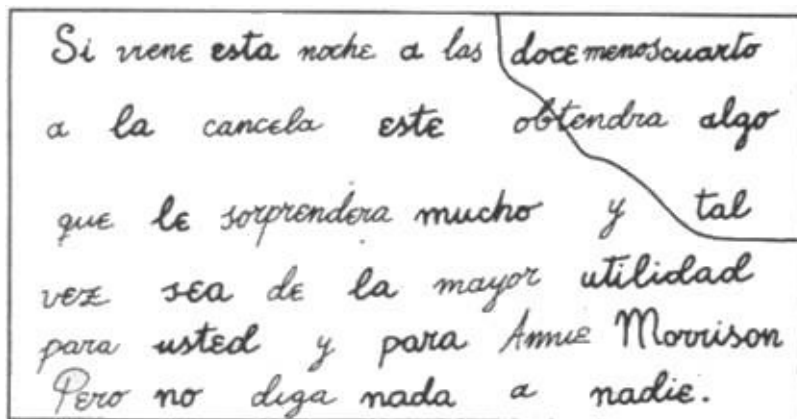 Si viene esta noche a las doce menos cuarto
a la cancela este obtendra algo
que le sorprendera mucho y tal
vez sea de la mayor utilidad
para usted y para Annie Morrison
Pero no diga nada a nadie.